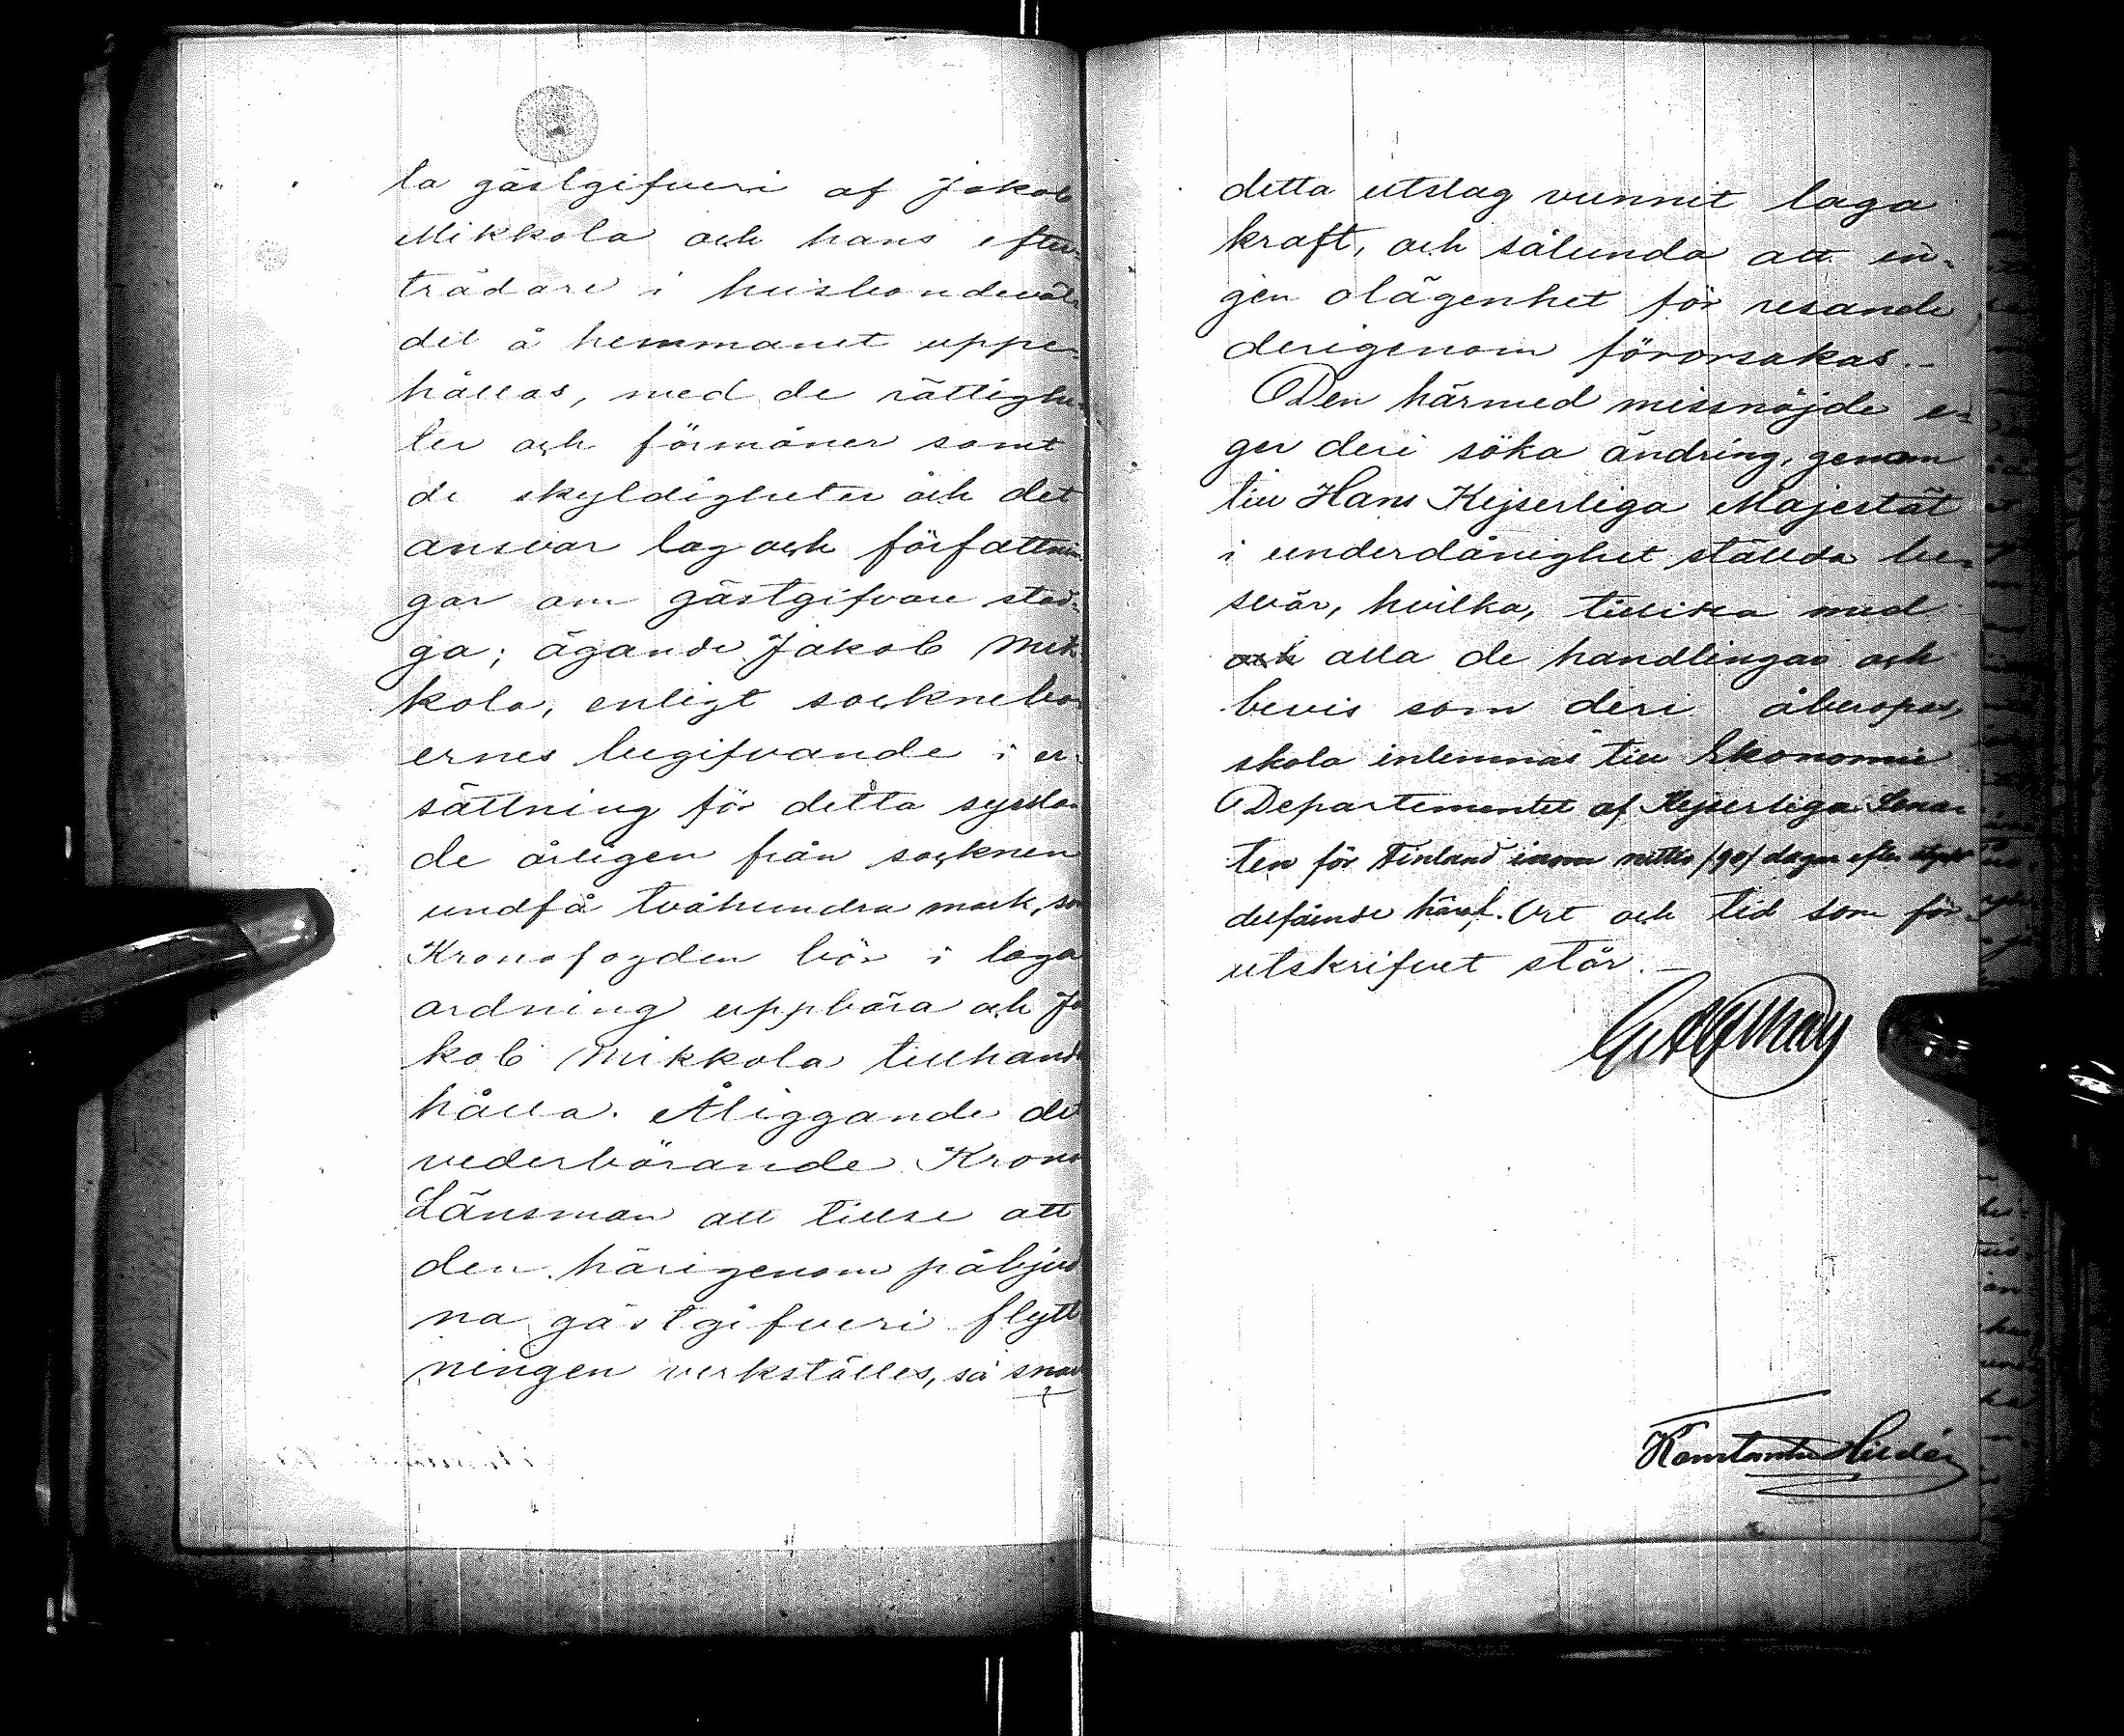 la gästgifveri af Jakob
Mikkola och hans efter-
trädare i husbondeväl-
det å hemmanet uppe-
hållas, med de rättighe-
ter och förmåner samt
de skyldigheter och det
ansvar lag och författnin-
gar om gästgifvare stad-
ga; ägande Jakob Mik-
kola, enligt socknebo-
ernes begifvande i er-
sättning för detta
de årligen från socknen
undfå tvåhundra mark, som
Kronofogden bör i laga
ordning uppbära och Ja
kob Mikkola tillhanda
hålla. Åliggande det
vederbörande Krono
Länsman att tillse att
den härigenom påbjud
na gästgifveri flytt
ningen verkställes, så snart
detta utslag vunnit laga
kraft, och sålunda att in-
gen olägenhet för resande
derigenom förorsakas.-
Den härmed missnöjde e-
ger deri söka ändring, genom
till Hans Kejserliga Majestät
i underdånighet ställda be-
svär, hvilka, tillika med
och alla de handlingar och
bevis som deri åberopas,
skola inlemnas till Ekonomie
Departementet af Kejserliga Sena-
ten för Finland inom nittio /90/ dagar efter
delfående häraf. Ort och tid som för-
utskrifvet står.-
Konstantin